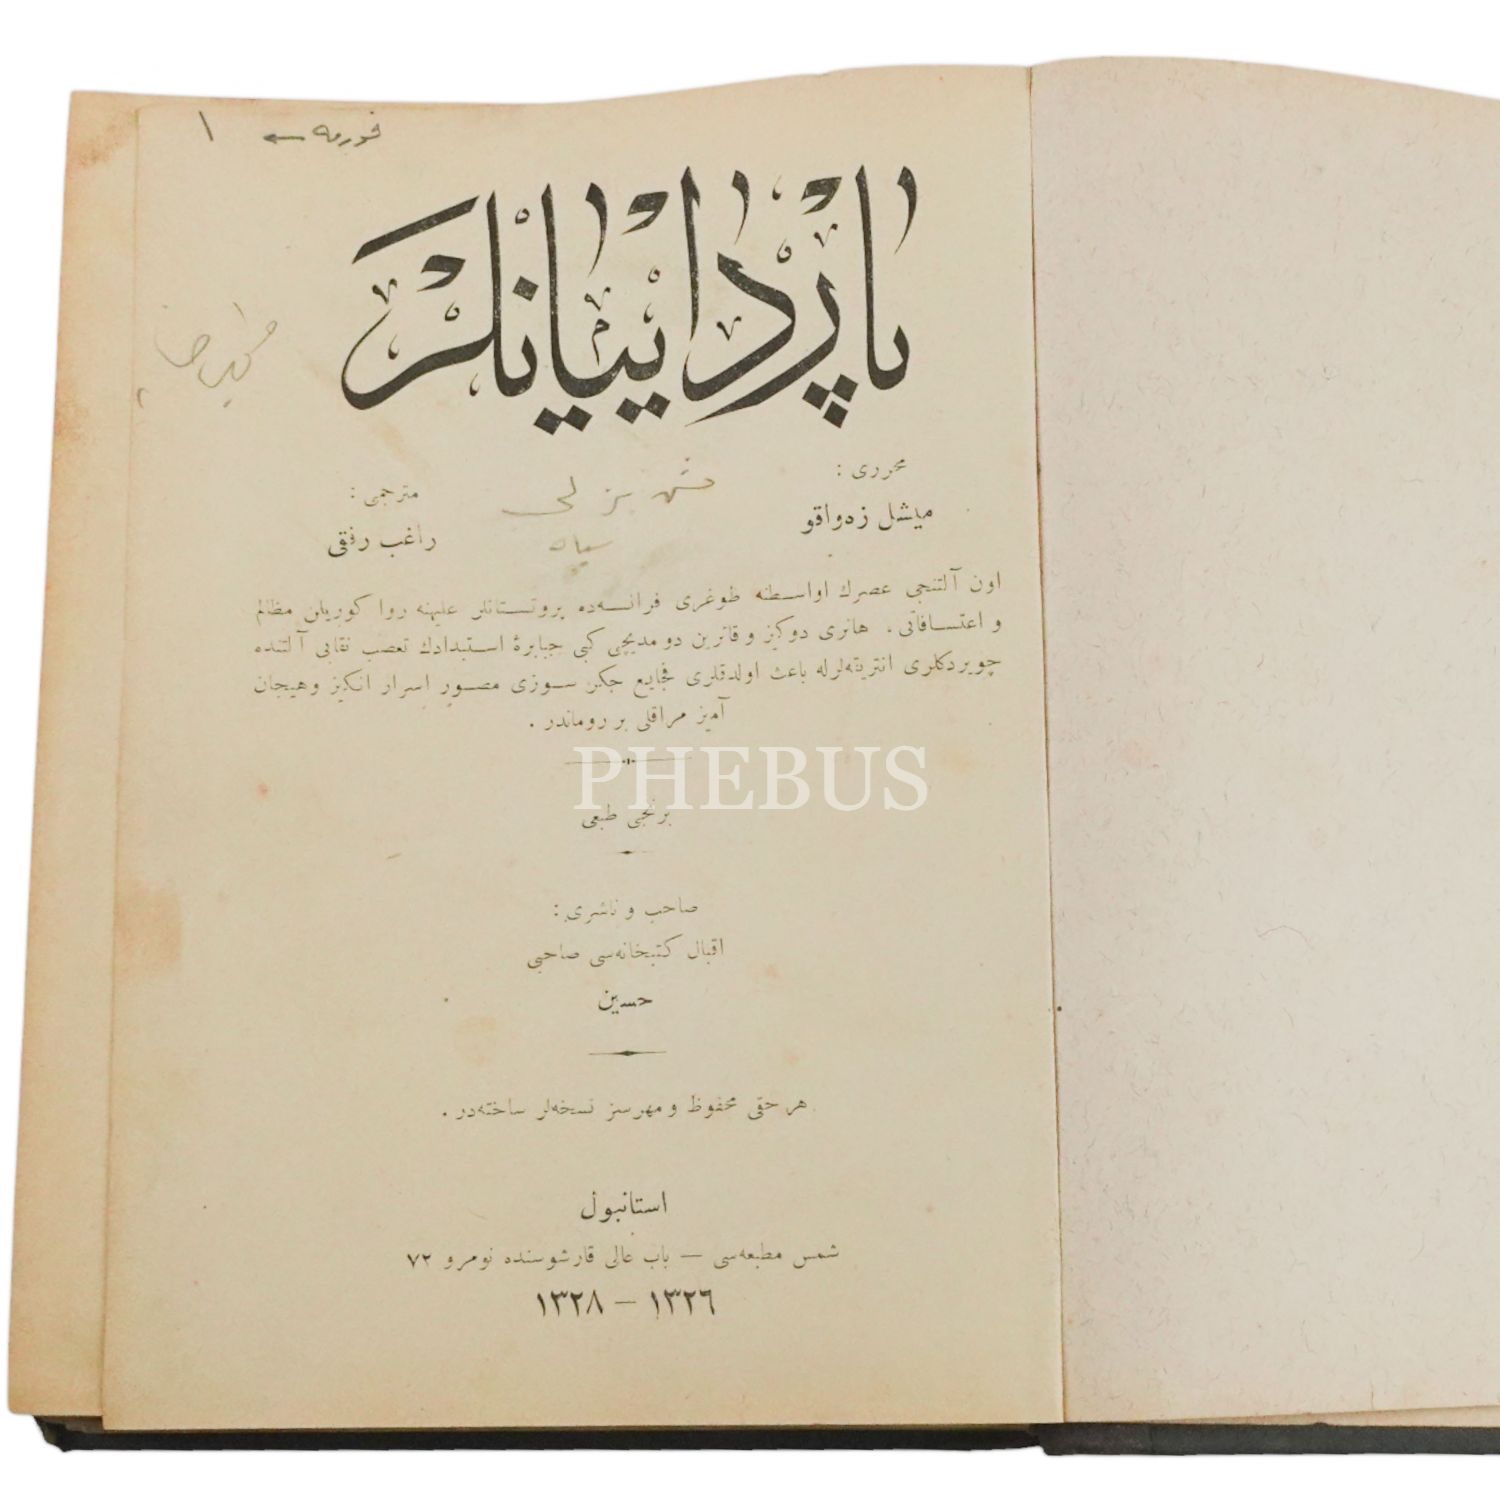 فورمه ١
پاردایيانلر
محرری :
میشل زه‌واقو
مترجمی :
راغب رفقی
اون آلتنجی عصرك اواسطنه طوغری فرانسه‌ده پروتستانلر علیهنه روا كوریلن مظالم
و اعتسافاتی . هانری دوكیز و قاترین دو مدیچی كبی جبابرۀ استبدادك تعصب نقابی آلتنده
چویردكلری انتریقه‌لرله باعث اولدقلری فجایع جكر سوزی مصور اسرار انكیز و هیجان
آمیز مراقلی بر روماندر .
PHEBUS
برنجی طبعی
صاحب و ناشری :
اقبال كتبخانه‌سی صاحبی
حسین
هر حقی محفوظ و مهرسز نسخه‌لر ساخته‌در .
استانبول
شمس مطبعه‌سی — باب عالی قارشوسنده نومرو ٧٢
١٣٢٦ — ١٣٢٨